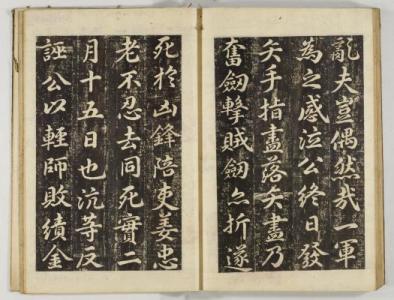 亂夫豈偶然哉一軍
為之感泣公終日發
矢手指盡落矢盡乃
奮劒擊賊劒亦折遂
死於凶鋒陪吏姜忠
老不忍去同死實二
月十五日也沆等反
誣公以輕師敗績金